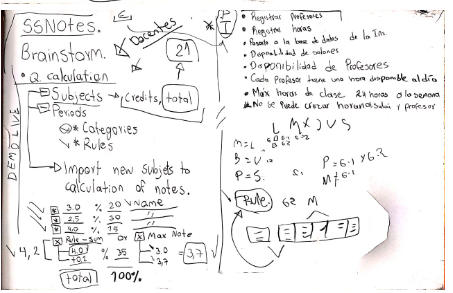 SSNotes.
Brainstorm.
• Q. calculation
Docentes
21
Subjects → Credits, total
Periods
* Categories
* Rules
DEMO LIVE
Import new subjets to
calculation of notes.
3.0 % 20 Name
2.5 % 30
4.0 % 15
Rule - sum or Max Note
4.0 % 35 3.0
+0.2 3,7
= 3,7
4,2
total 100%.
• Registrar Profesores
• Registrar horas
• Disponibilidad de salones
• DISPONIBILIDAD de Profesores
• Cada Profesor tiene una hora disponible al día
• Máx horas de clase 24 horas a la semana
* No se puede cruzar horario salón y profesor
L M X J V S
M = L
P = S.
P = 6-1 y 6.2
M ≠ 6-1
Rule. 62 M
1